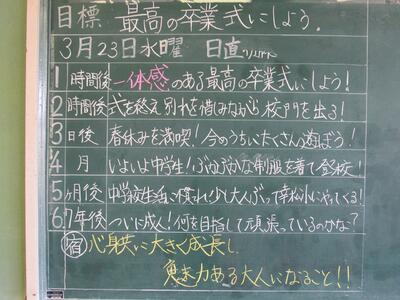 目標 最高の卒業式にしよう。
3月23日水曜 日直
1 時間後 一体感のある最高の卒業式にしよう!
2 時間後 式を終え、別れを惜しみながら校門を出る!
3 日後 春休みを満喫!今のうちにたくさん遊ぼう!
4 月 いよいよ中学生!ぶかぶかな制服を着て登校!
5 ヶ月後 中学校生活に慣れ、少し大人ぶって幸松小にやってくる!
6. 7年後 ついに成人!何を目指して頑張っているのかな?
宿 心身共に大きく成長し、
魅力ある大人になること!!